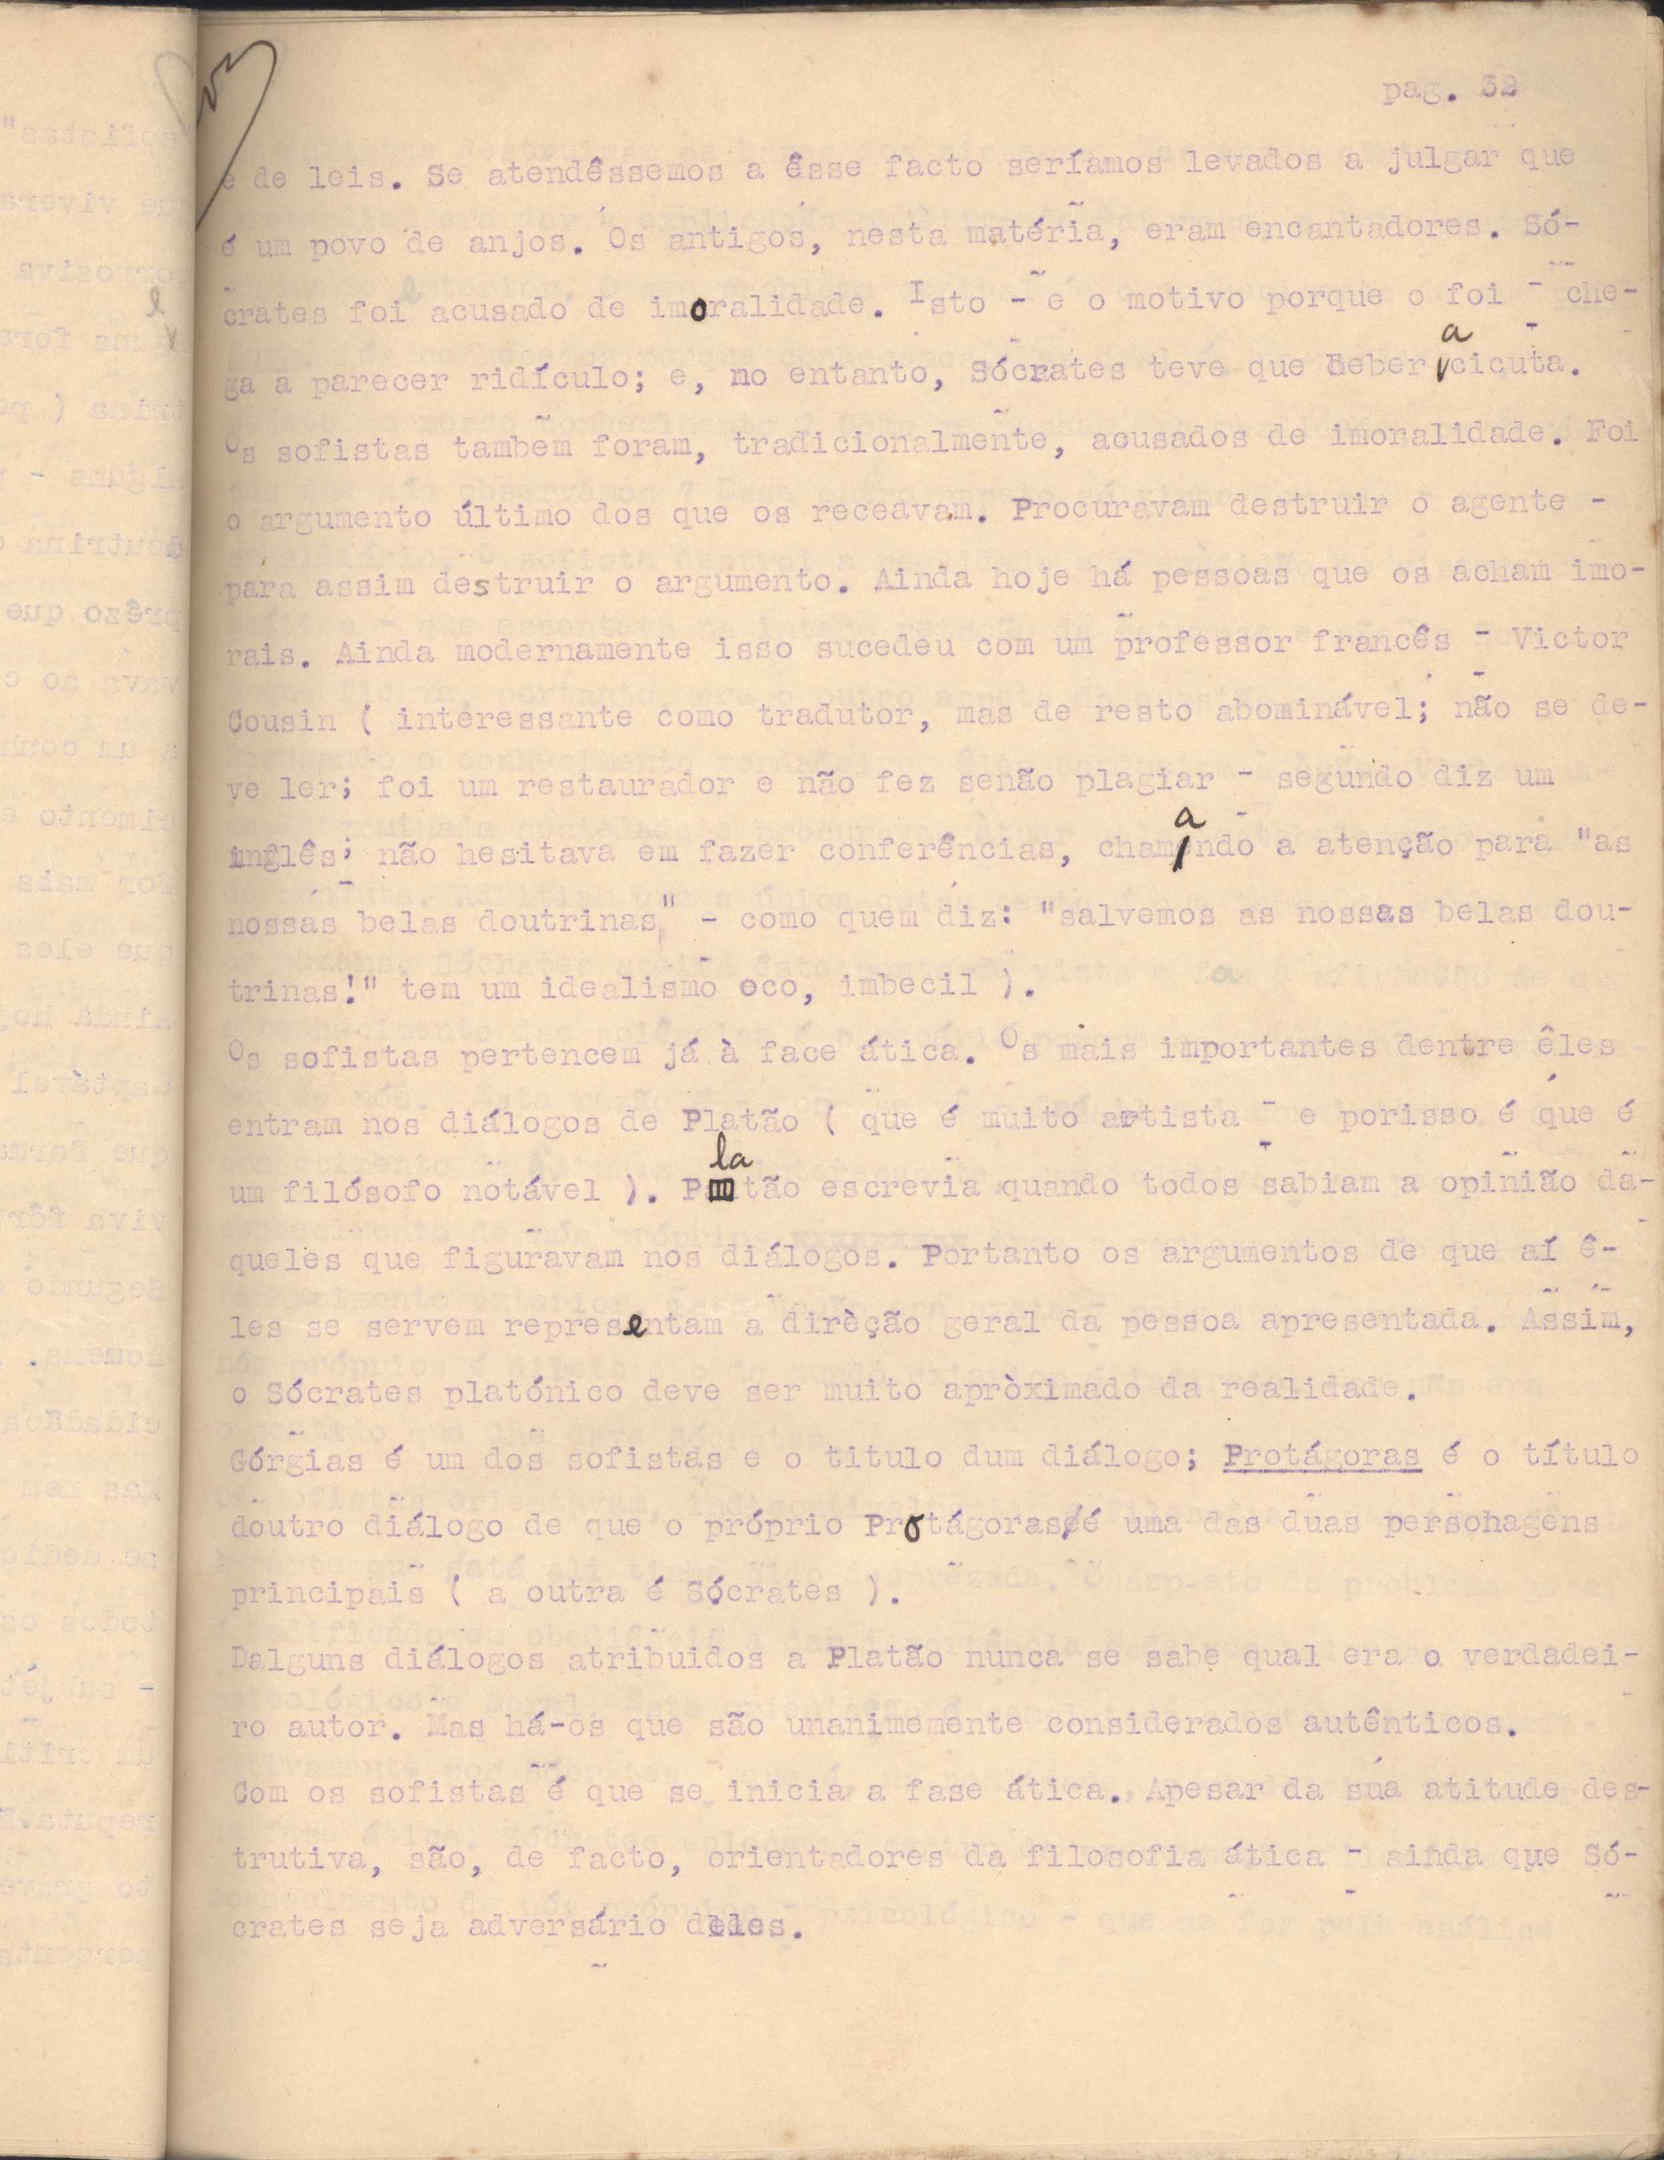 pag. 32
e de leis. Se atendêssemos a êsse facto seríamos levados a julgar que
é um povo de anjos. Os antigos, nesta matéria, eram encantadores. Só-
crates foi acusado de imoralidade. Isto - e o motivo porque o foi - che-
ga a parecer ridículo; e, no entanto, Sócrates teve que beber a cicuta.
Os sofistas tambem foram, tradicionalmente, acusados de imoralidade. Foi
o argumento último dos que os receavam. Procuravam destruir o agente -
para assim destruir o argumento. Ainda hoje há pessoas que os acham imo-
rais. Ainda modernamente isso sucedeu com um professor francês - Victor
Cousin ( interessante como tradutor, mas de resto abominável; não se de-
ve ler; foi um restaurador e não fez senão plagiar - segundo diz um
inglês; não hesitava em fazer conferências, chamando a atenção para "as
nossas belas doutrinas" - como quem diz: "salvemos as nossas belas dou-
trinas!" tem um idealismo oco, imbecil ).
Os sofistas pertencem já à face ática. Os mais importantes dentre êles
entram nos diálogos de Platão ( que é muito artista - e porisso é que é
um filósofo notável ). Platão escrevia quando todos sabiam a opinião da-
queles que figuravam nos diálogos. Portanto os argumentos de que aí ê-
les se servem representam a dirèção geral da pessoa apresentada. Assim,
o Sócrates platónico deve ser muito apròximado da realidade.
Górgias é um dos sofistas e o titulo dum diálogo; Protágoras é o título
doutro diálogo de que o próprio Protágoras é uma das duas personagens
principais ( a outra é Sócrates ).
Dalguns diálogos atribuidos a Platão nunca se sabe qual era o verdadei-
ro autor. Mas há-os que são unanimemente considerados autênticos.
Com os sofistas é que se inicia a fase ática. Apesar da sua atitude des-
trutiva, são, de facto, orientadores da filosofia ática - ainda que Só-
crates seja adversário deles.